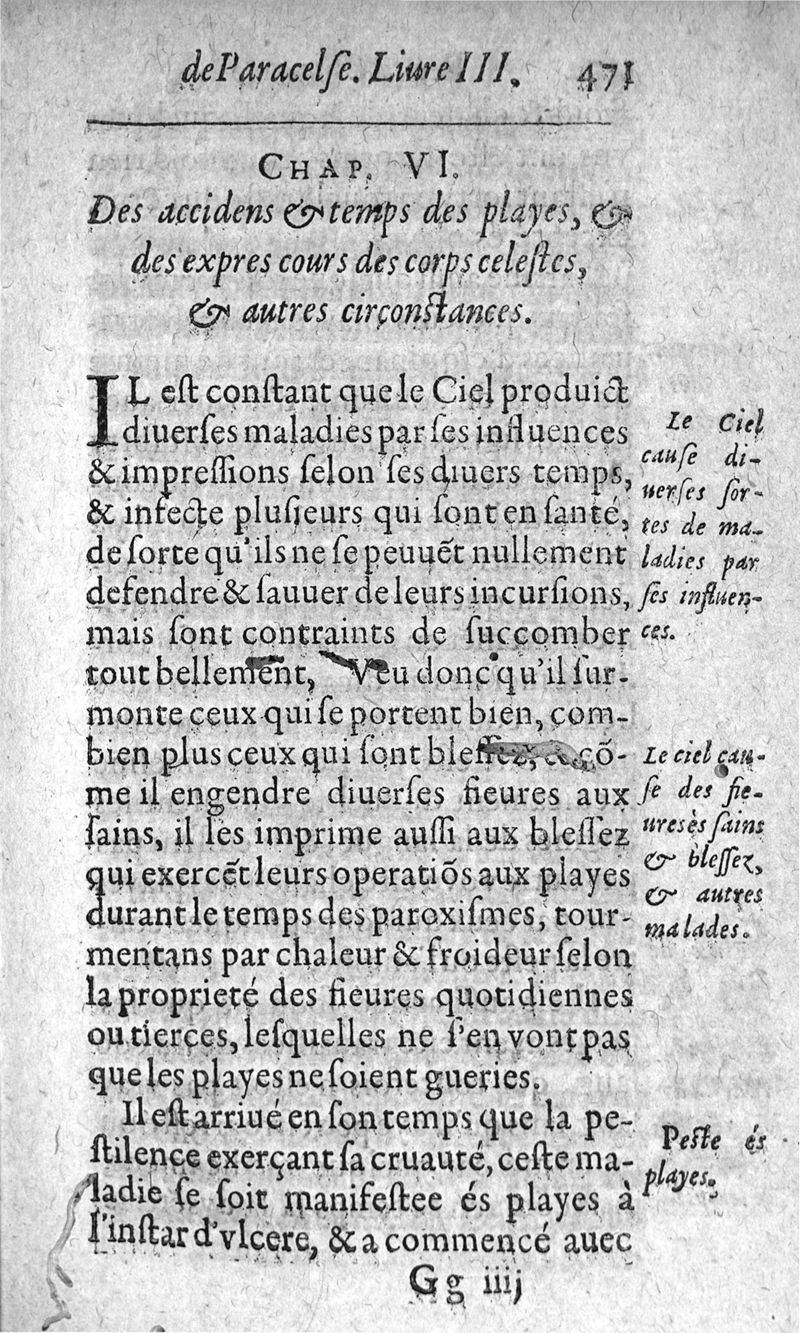 de Paracelſe. Liure III. 471
CHAP. VI.
Des accidens & temps des playes, &
des expres cours des corps celeſtes,
& autres circonſtances.
IL eſt conſtant que le Ciel produict
diuerſes maladies par ſes influences
& impreſſions ſelon ſes diuers temps,
& infecte pluſieurs qui ſont en ſanté,
de ſorte qu'ils ne ſe peuuẽt nullement
defendre & ſauuer de leurs incurſions,
mais ſont contraints de ſuccomber
tout bellement, Veu donc qu'il ſur-
monte ceux qui ſe portent bien, com-
bien plus ceux qui ſont bleſſez, & cõ-
me il engendre diuerſes fieures aux
ſains, il les imprime auſſi aux bleſſez
qui exercẽt leurs operatiõs aux playes
durant le temps des paroxiſmes, tour-
mentans par chaleur & froideur ſelon
la proprieté des fieures quotidiennes
ou tierces, leſquelles ne s'en vont pas
que les playes ne ſoient gueries.
Il eſt arriué en ſon temps que la pe-
ſtilence exerçant ſa cruauté, ceſte ma-
ladie ſe ſoit manifeſtee és playes à
l'inſtar d'vlcere, & a commencé auec
Gg iiij
Le Ciel
cauſe di-
uerſes ſor-
tes de ma-
ladies par
ſes influen-
ces.
Le ciel cau-
ſe des fie-
ures ès ſains
& bleſſez,
& autres
malades.
Peſte és
playes.